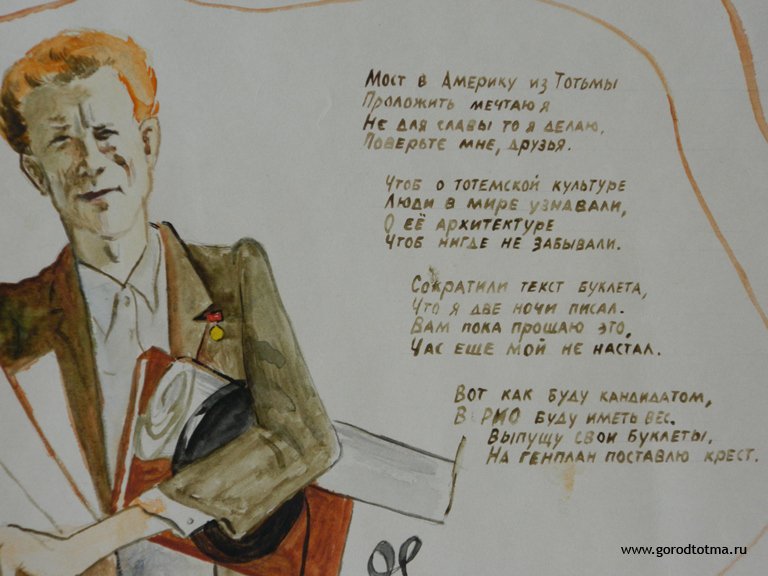 Мост в Америку из Тотьмы
Проложить мечтаю я
Не для славы то я делаю,
Поверьте мне, друзья.
Чтоб о тотемской культуре
Люди в мире узнавали,
О её архитектуре
Чтоб нигде не забывали.
Сократили текст буклета,
Что я две ночи писал.
Вам пока прощаю это,
Час еще мой не настал.
Вот как буду кандидатом,
В РИО буду иметь вес.
Выпущу свои буклеты,
На генплан поставлю крест.
www.gorodtotma.ru